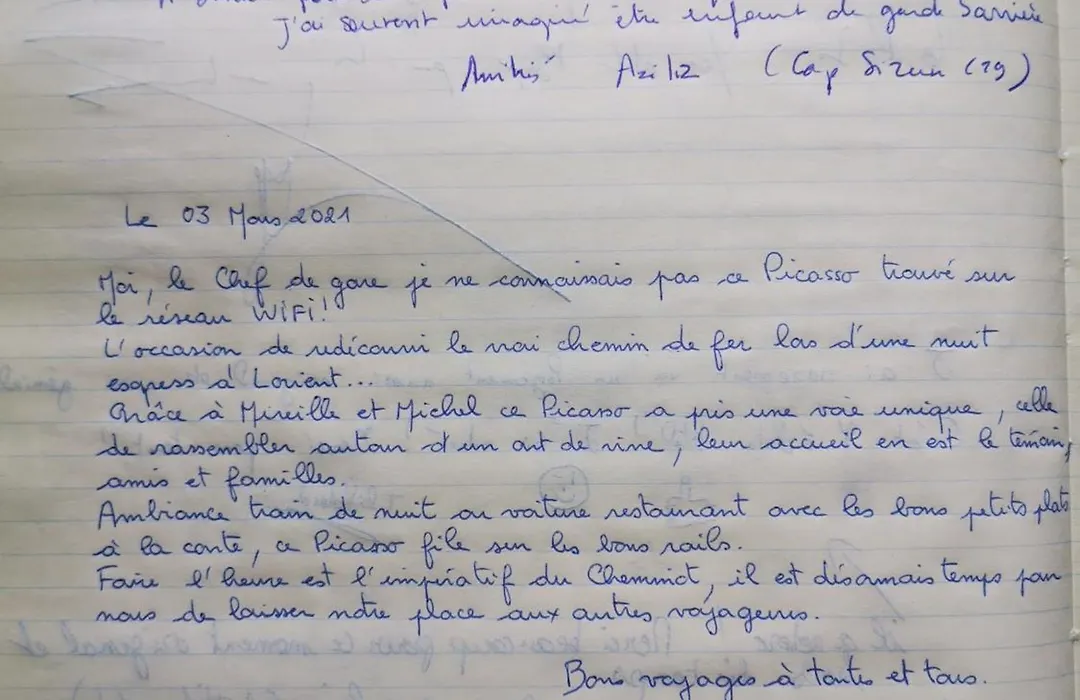 J'ai souvent imaginé être enfant de garde barrière
Amitiés Aziliz (Cap Sizun (29)
Le 03 Mars 2021
Moi, le Chef de gare je ne connaissais pas ce Picasso trouvé sur
le réseau WiFi!
L'occasion de redécouvrir le vrai chemin de fer lors d'une nuit
express à Lorient...
Grâce à Mireille et Michel ce Picasso a pris une voie unique, celle
de rassembler autour d'un art de vivre, leur accueil en est le témoin,
amis et familles.
Ambiance train de nuit ou voiture restaurant avec les bons petits plats
à la carte, ce Picasso file sur les bons rails.
Faire l'heure est l'impératif du Cheminot, il est désormais temps pour
nous de laisser notre place aux autres voyageurs.
Bons voyages à toutes et tous.